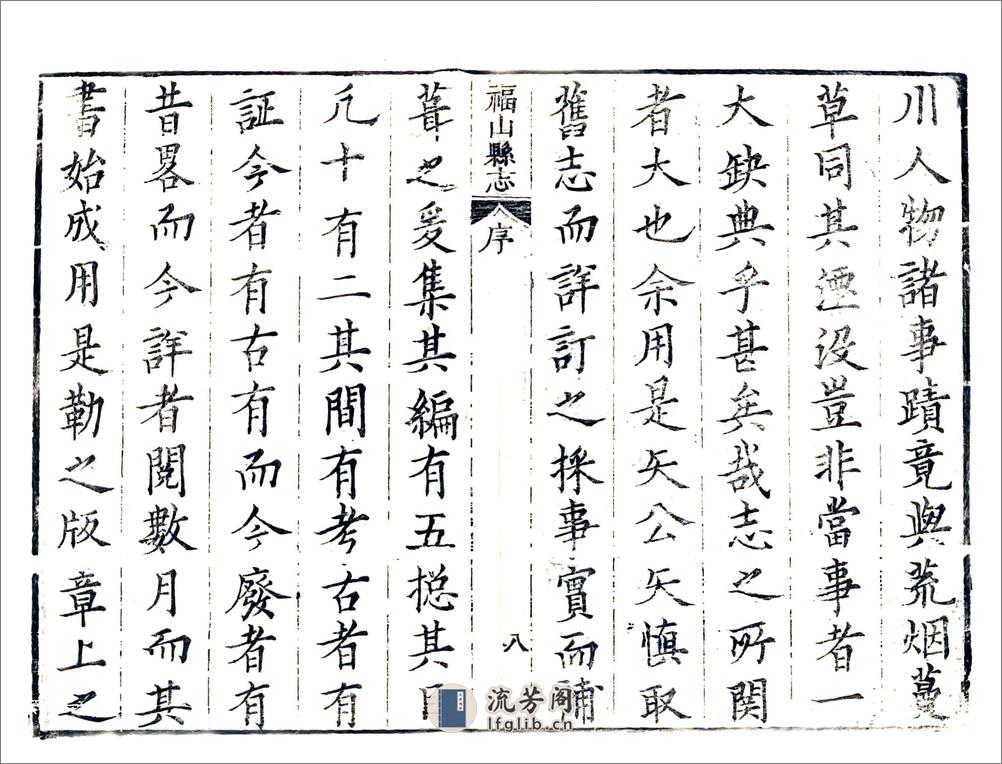 川人物諸事蹟竟與荒烟蔓
草同其湮没豈非當事者一
大缺典乎甚矣哉志之所関
者大也余用是矢公矢慎取
舊志而詳訂之採事實而補
福山縣志 序 八
葺之爰集其編有五揔其目
凢十有二其間有考古者有
証今者有古有而今廢者有
昔畧而今詳者閱數月而其
書始成用是勒之版章上之
流芳阁
lfglib.cn